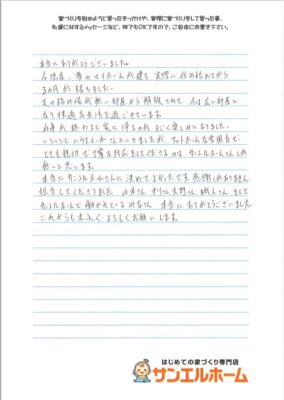 家づくりを始めようと思ったきっかけや、実際に家づくりをして思った事、
私達に対するメッセージなど、何でもOKですので、ご自由にお書き下さい。
本当にありがとうございました。
今現在、夢のマイホームが建ち実際に住み始めてから
3ヵ月が経ちました。
足の踏み場が無い部屋から解放されて、今は広い部屋に
なり快適な生活を過ごせています。
仕事が終わると家に帰るのがすごく楽しみになりました。
いろいろとハウスメーカーさんにいきましたが、アットホームな雰囲気で
とても親切で丁寧な対応をしてくださるのは、サンエルホームさんしか
無いと思います。
本当にサンエルホームさんに決めてよかったです。感謝しかありません
担当してくださりました 山本さん、大野さん、職人さん、そして
サンエルホームで働かれているみなさん、本当にありがとうございました
これからも末永くよろしくお願いします。
はじめての家づくり専門店
サンエルホーム